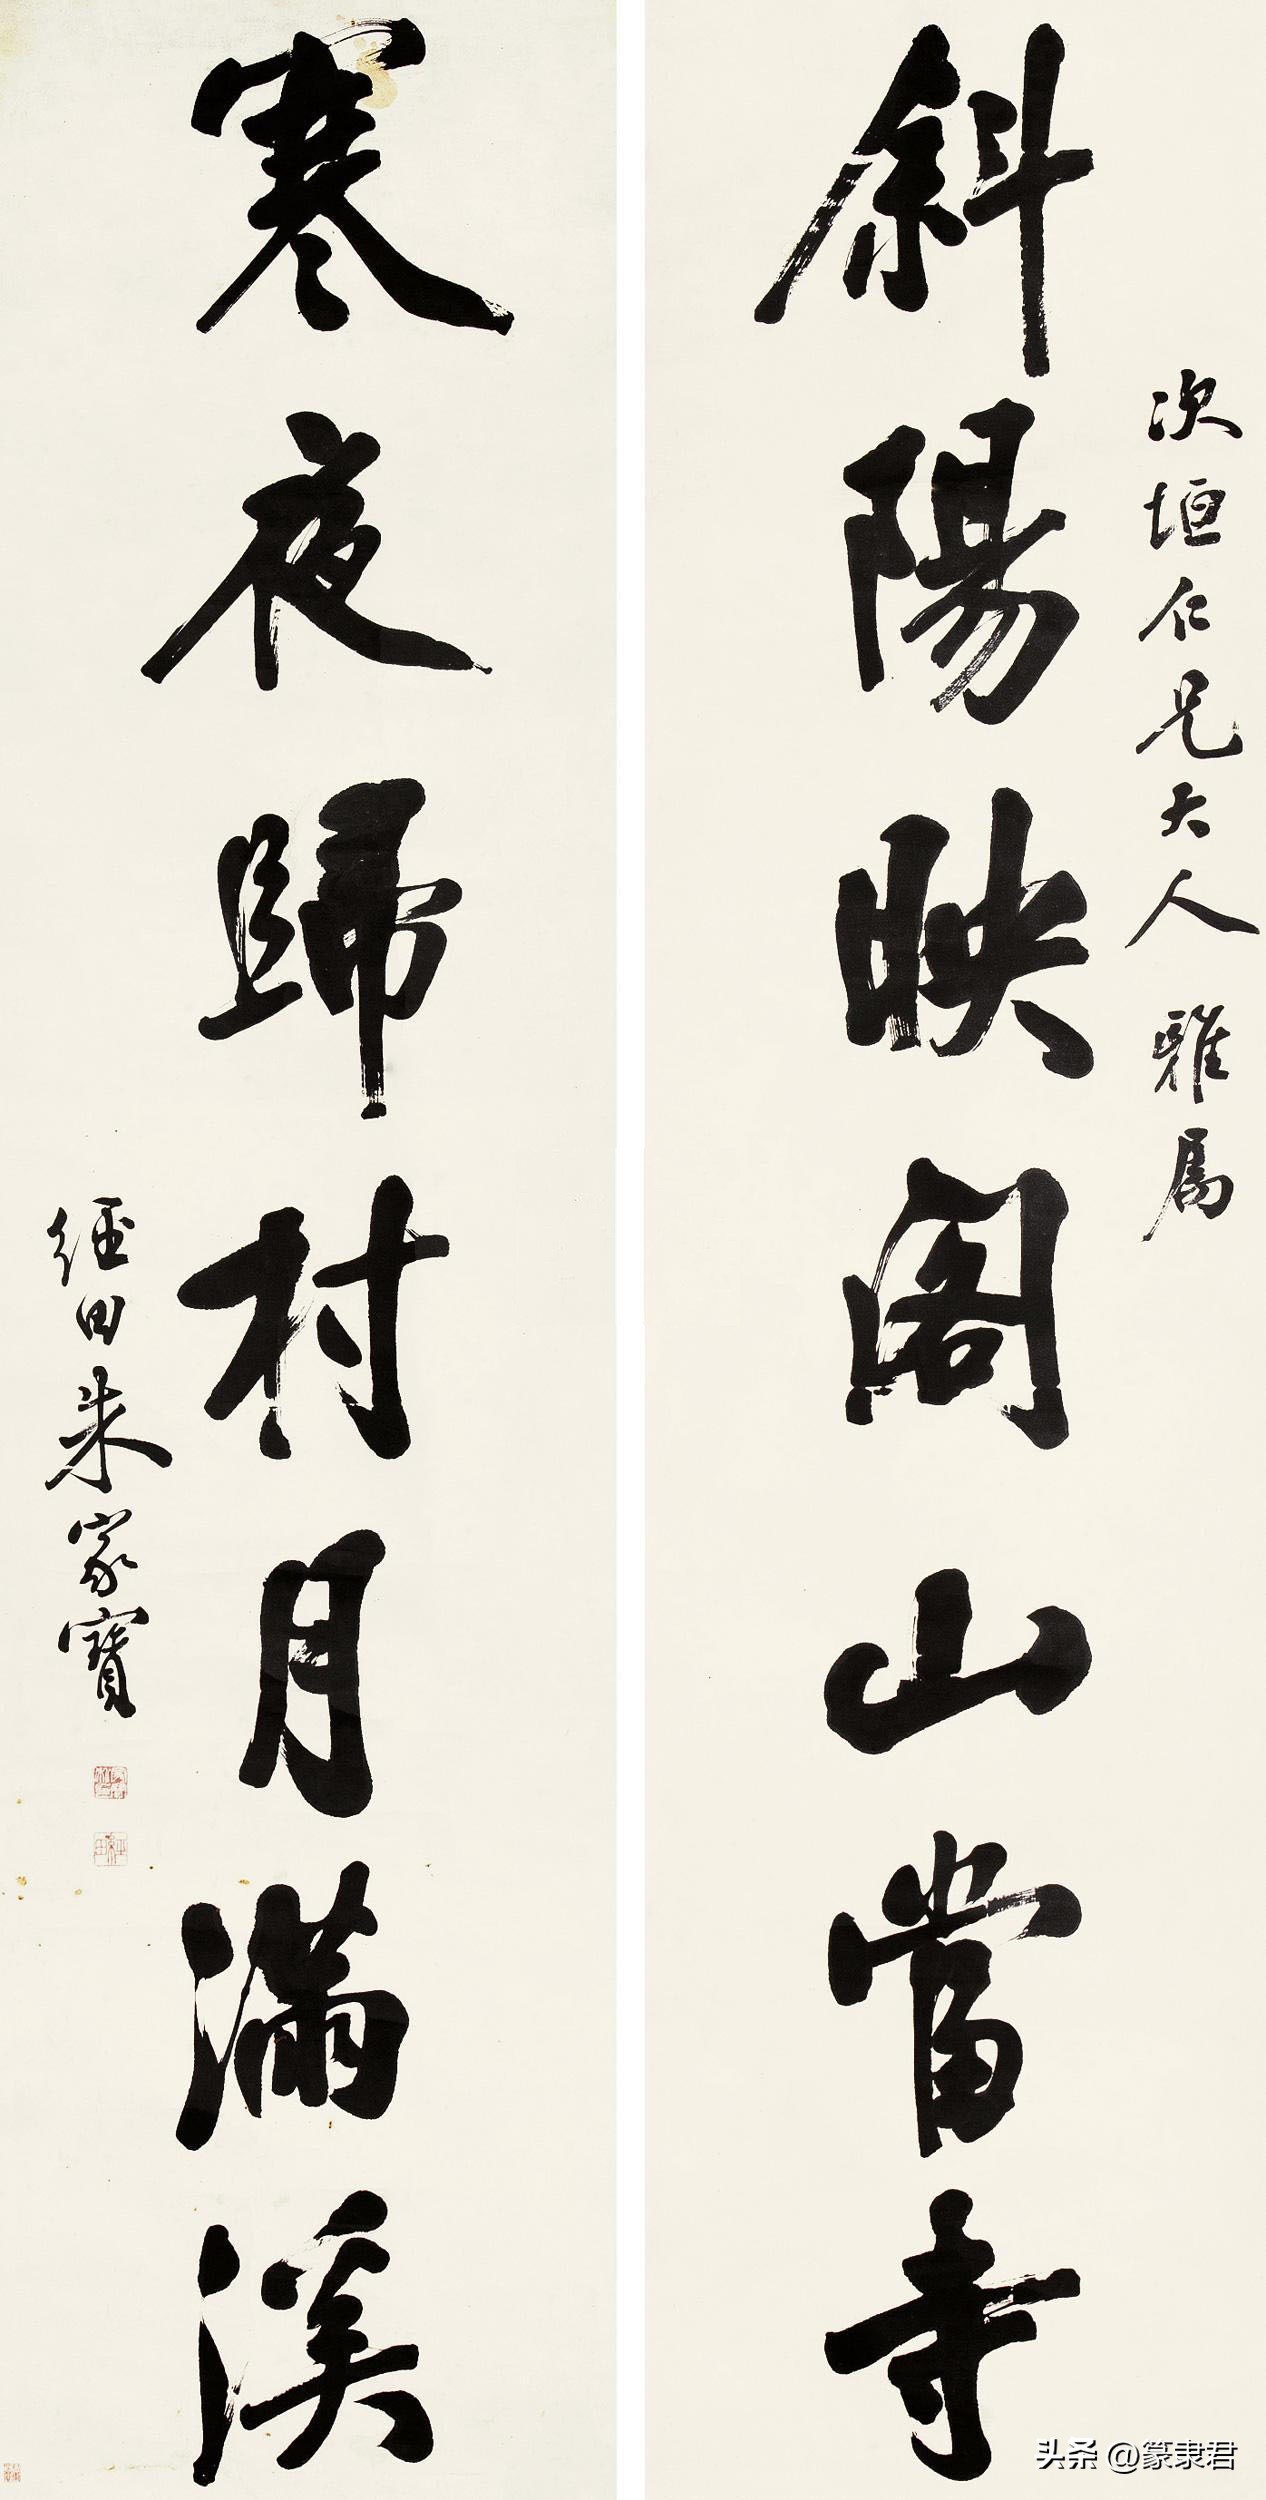 次垣仁兄大人 雅属
斜陽映阁山當寺
寒夜歸村月滿溪
经田朱家寶
头条 @篆隶君